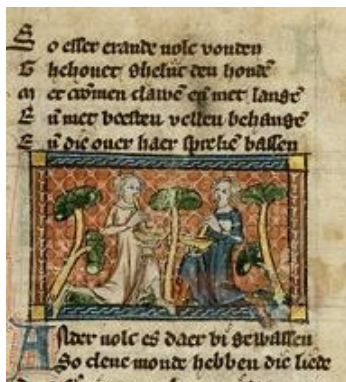 S o esser erande volc vonden
G hehouet ghelijc den honde
M et crōmen clawē en̄ met lange
E n̄ met beesten vellen behange
E n̄ die ouer haer sprekē bassen
Ander volc es daer bi gewassen
So clene monde hebben die liede